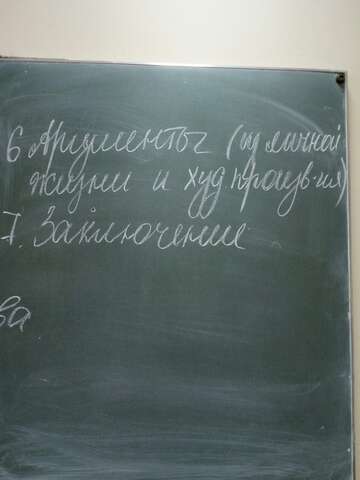 6 Аргументы (из личной
жизни и худ произв-ия)
7. Заключение
ва